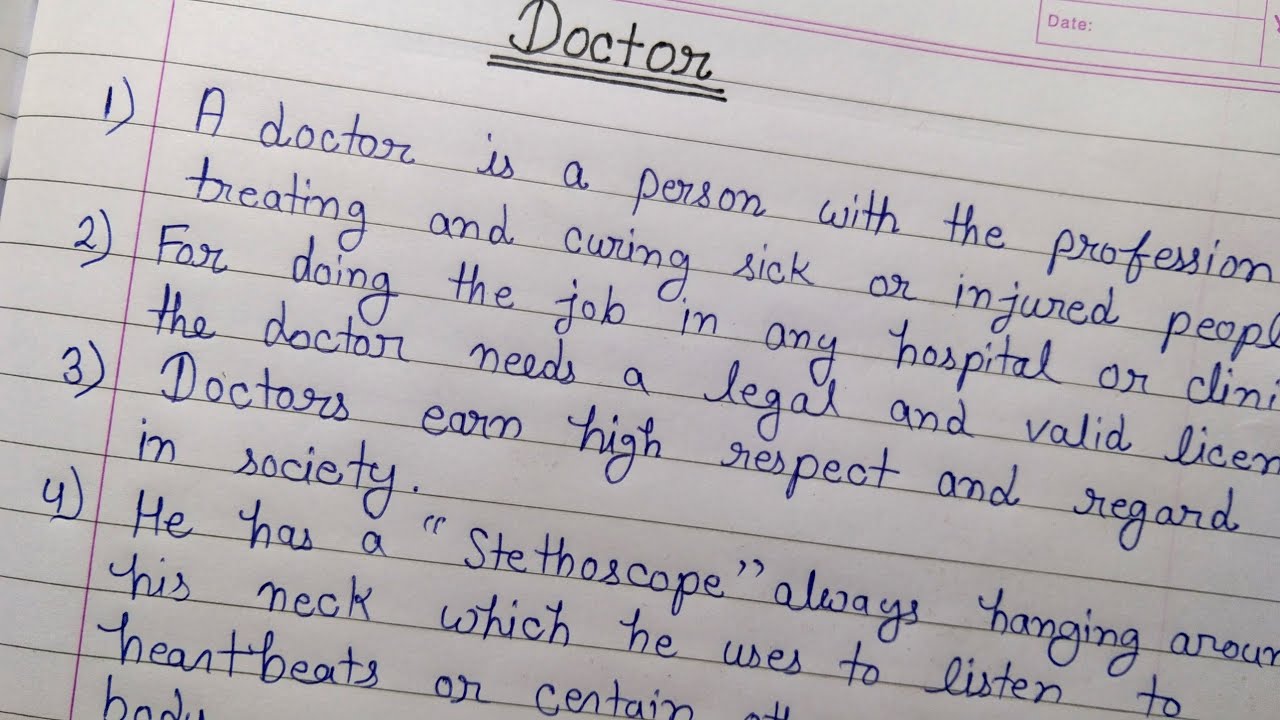 Date:
Doctor
1) A doctor is a person with the profession
treating and curing sick or injured peopl
2) For doing the job in any hospital or clini
the doctor needs a legal and valid licen
3) Doctors earn high respect and regard
in society.
4) He has a "Stethoscope" always hanging aroun
his neck which he uses to listen to
heartbeats or certain
body